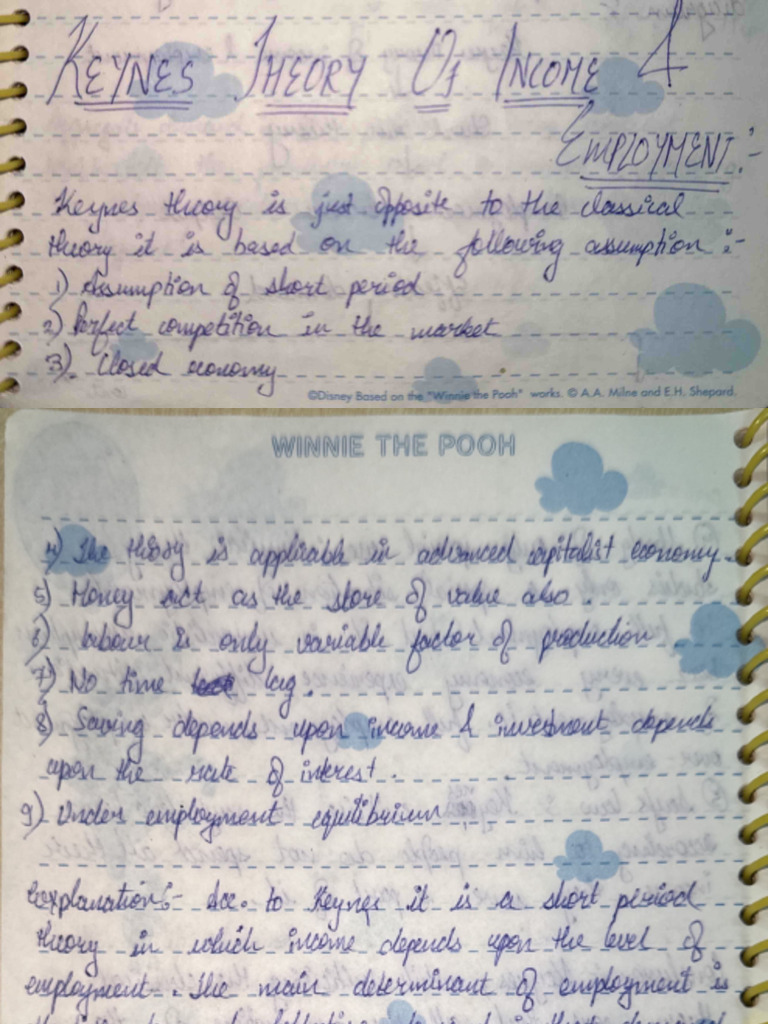 KEYNES THEORY Of INCOME &
EMPLOYMENT:-
Keynes theory is just opposite to the classical
theory it is based on the following assumption :-
1) Assumption of short period
2) Perfect competition in the market
3). Closed economy
©Disney Based on the "Winnie the Pooh" works. © A.A. Milne and E.H. Shepard.
WINNIE THE POOH
4) The theory is applicable in advanced capitalist economy.
5) Money act as the store of value also.
6) labour is only variable factor of production
7) No time lag.
8) Saving depends upon income & investment depends
upon the rate of interest.
9) Under employment equilibrium
Explanation:- Acc. to Keynes it is a short period
theory in which income depends upon the level of
employment. The main determinant of employment is